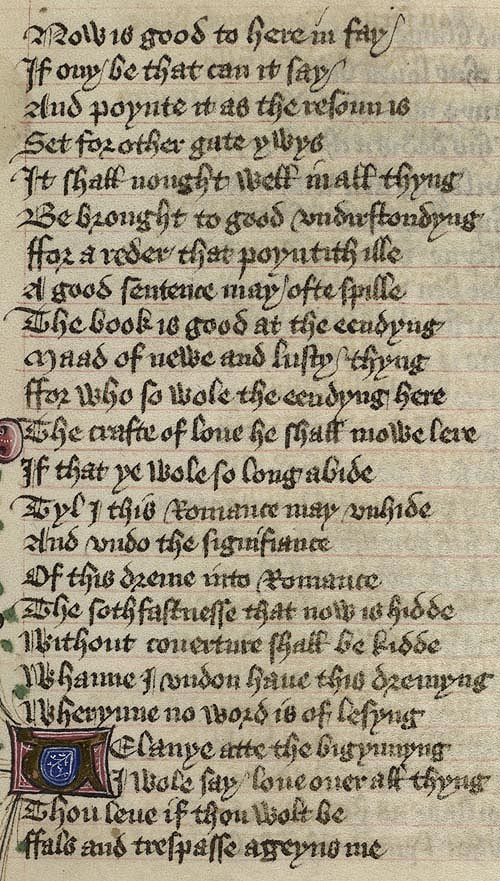 Now is good to here in fay
If ony be that can it say
And poynte it as the resoun is
Set for other gate ywys
It shall nought well in all thyng
Be brought to good undirstondyng
ffor a reder that poyntith ille
A good sentence may ofte spille
The book is good at the eendyng
Maad of newe and lusty thyng
ffor who so wole the eendyng here
The crafte of loue he shall mowe lere
If that ye wole so long abide
Tyl I this Romance may vnhide
And vndo the signifiance
Of this dreme into Romance
The sothfastnesse that now is hidde
Without couerture shall be kidde
Whanne I vndon haue this dremyng
Wherynne no word is of lesyng
Velanye atte the bigynnyng
I wole say loue ouer all thyng
Thou leue if thou wolt be
ffals and trespasse ageyns me